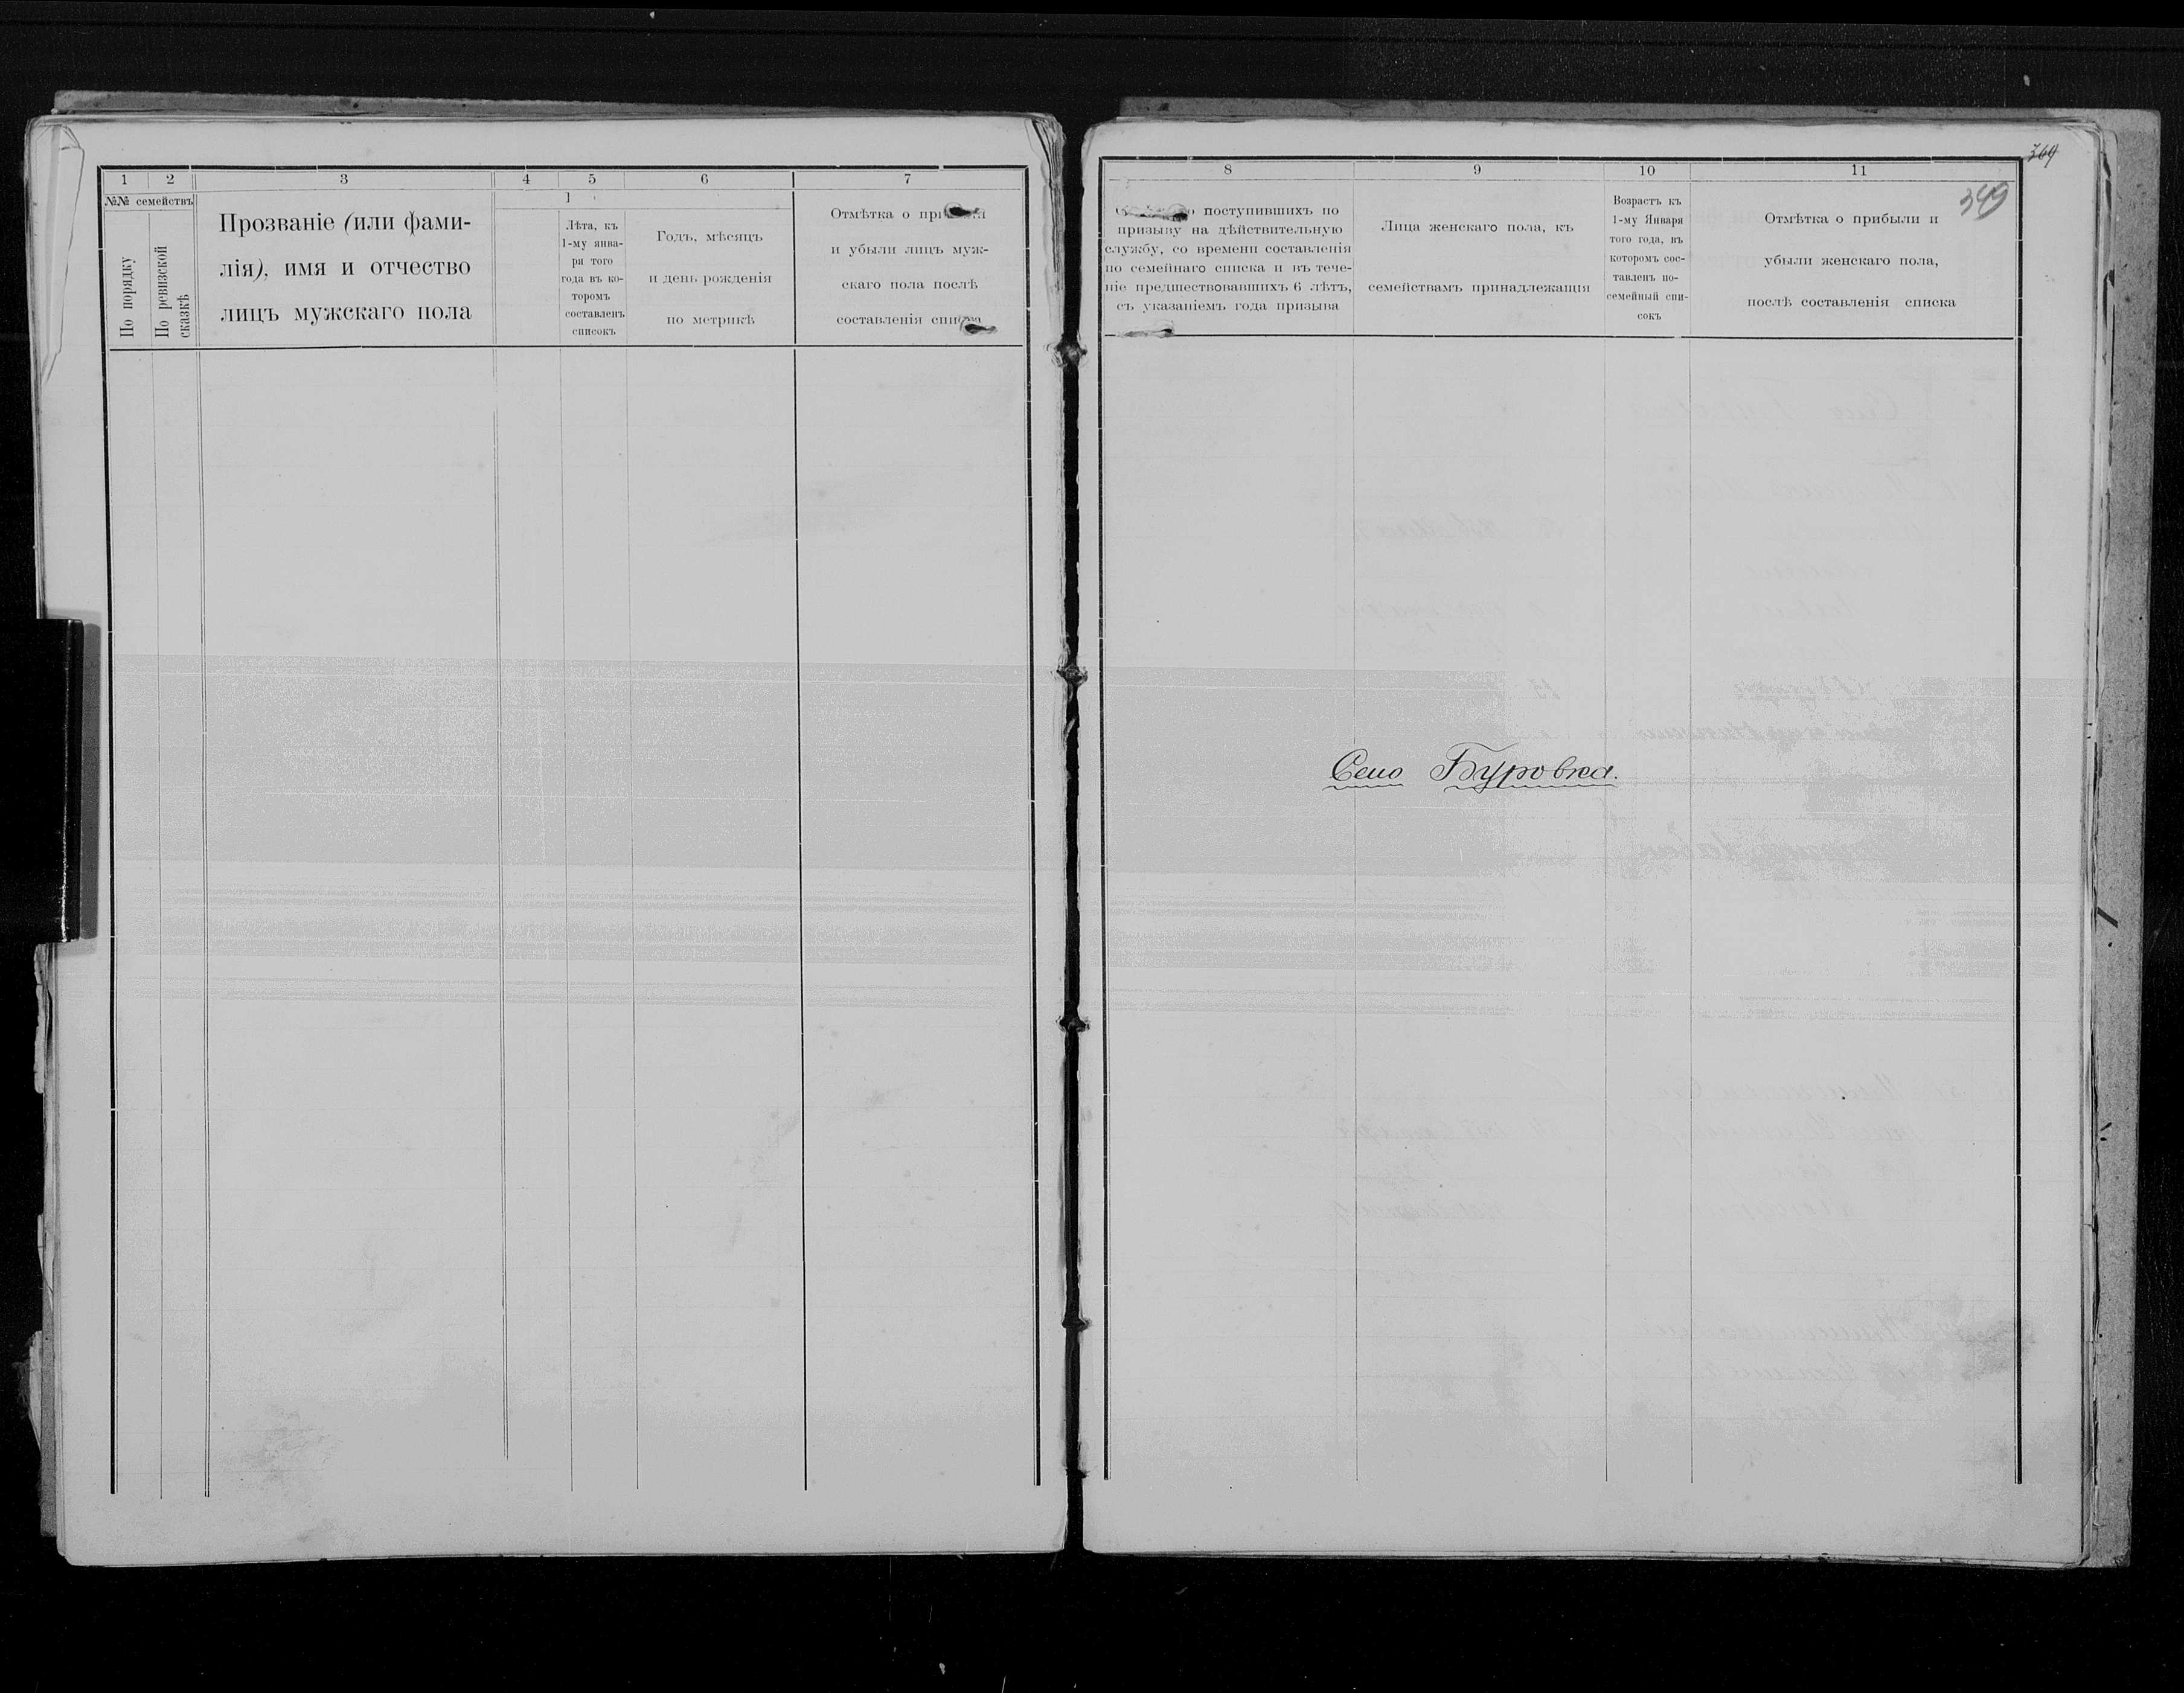 1 2 3 4 5 6 7
№№ семействъ
По порядку
По ревизской
сказкѣ
Прозваніе (или фами-
лія), имя и отчество
лицъ мужскаго пола
1
Лѣта, къ
1-му янва-
ря того
года въ ко-
торомъ
составленъ
списокъ
Годъ, мѣсяцъ
и день рожденія
по метрикѣ
Отмѣтка о
и убыли лицъ муж-
скаго пола послѣ
составленія списка
364
349
8 9 10 11
поступившихъ по
призыву на дѣйствительную
службу, со времени составленія
по семейнаго списка и въ тече-
ніе предшествовавшихъ 6 лѣтъ,
съ указаніемъ года призыва
Лица женскаго пола, къ
семействамъ принадлежащія
Возрастъ къ
1-му Января
того года, въ
которомъ сос-
тавленъ по-
семейный спи-
сокъ
Отмѣтка о прибыли и
убыли женскаго пола,
послѣ составленія списка
Село Буровка.